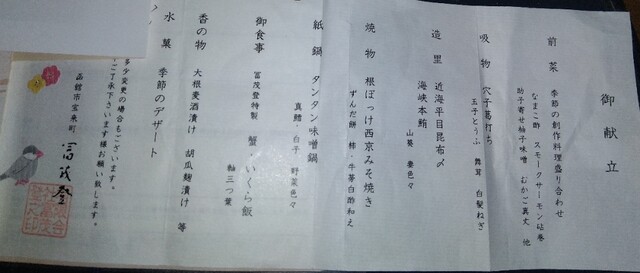 御献立
前菜　季節の創作料理盛り合わせ
なまこ酢　スモークサーモン砧巻
助子寄せ柚子味噌　むかご真丈　他
吸物　穴子葛打ち
玉子とうふ　舞茸　白髪ねぎ
造里　近海平目昆布〆
海峡本鮪
山葵　妻色々
焼物　根ぼっけ西京みそ焼き
ずんだ餅　柿・牛蒡白酢和え
紙鍋　タンタン味噌鍋
真鱈・白子　野菜色々
御食事　冨茂登特製　蟹・いくら飯
軸三つ葉
香の物　大根麦酒漬け　胡瓜麹漬け　等
水菓　季節のデザート
多少変更の場合もございます。
ご了承下さいます様お願い致します。
函館市宝来町　冨茂登